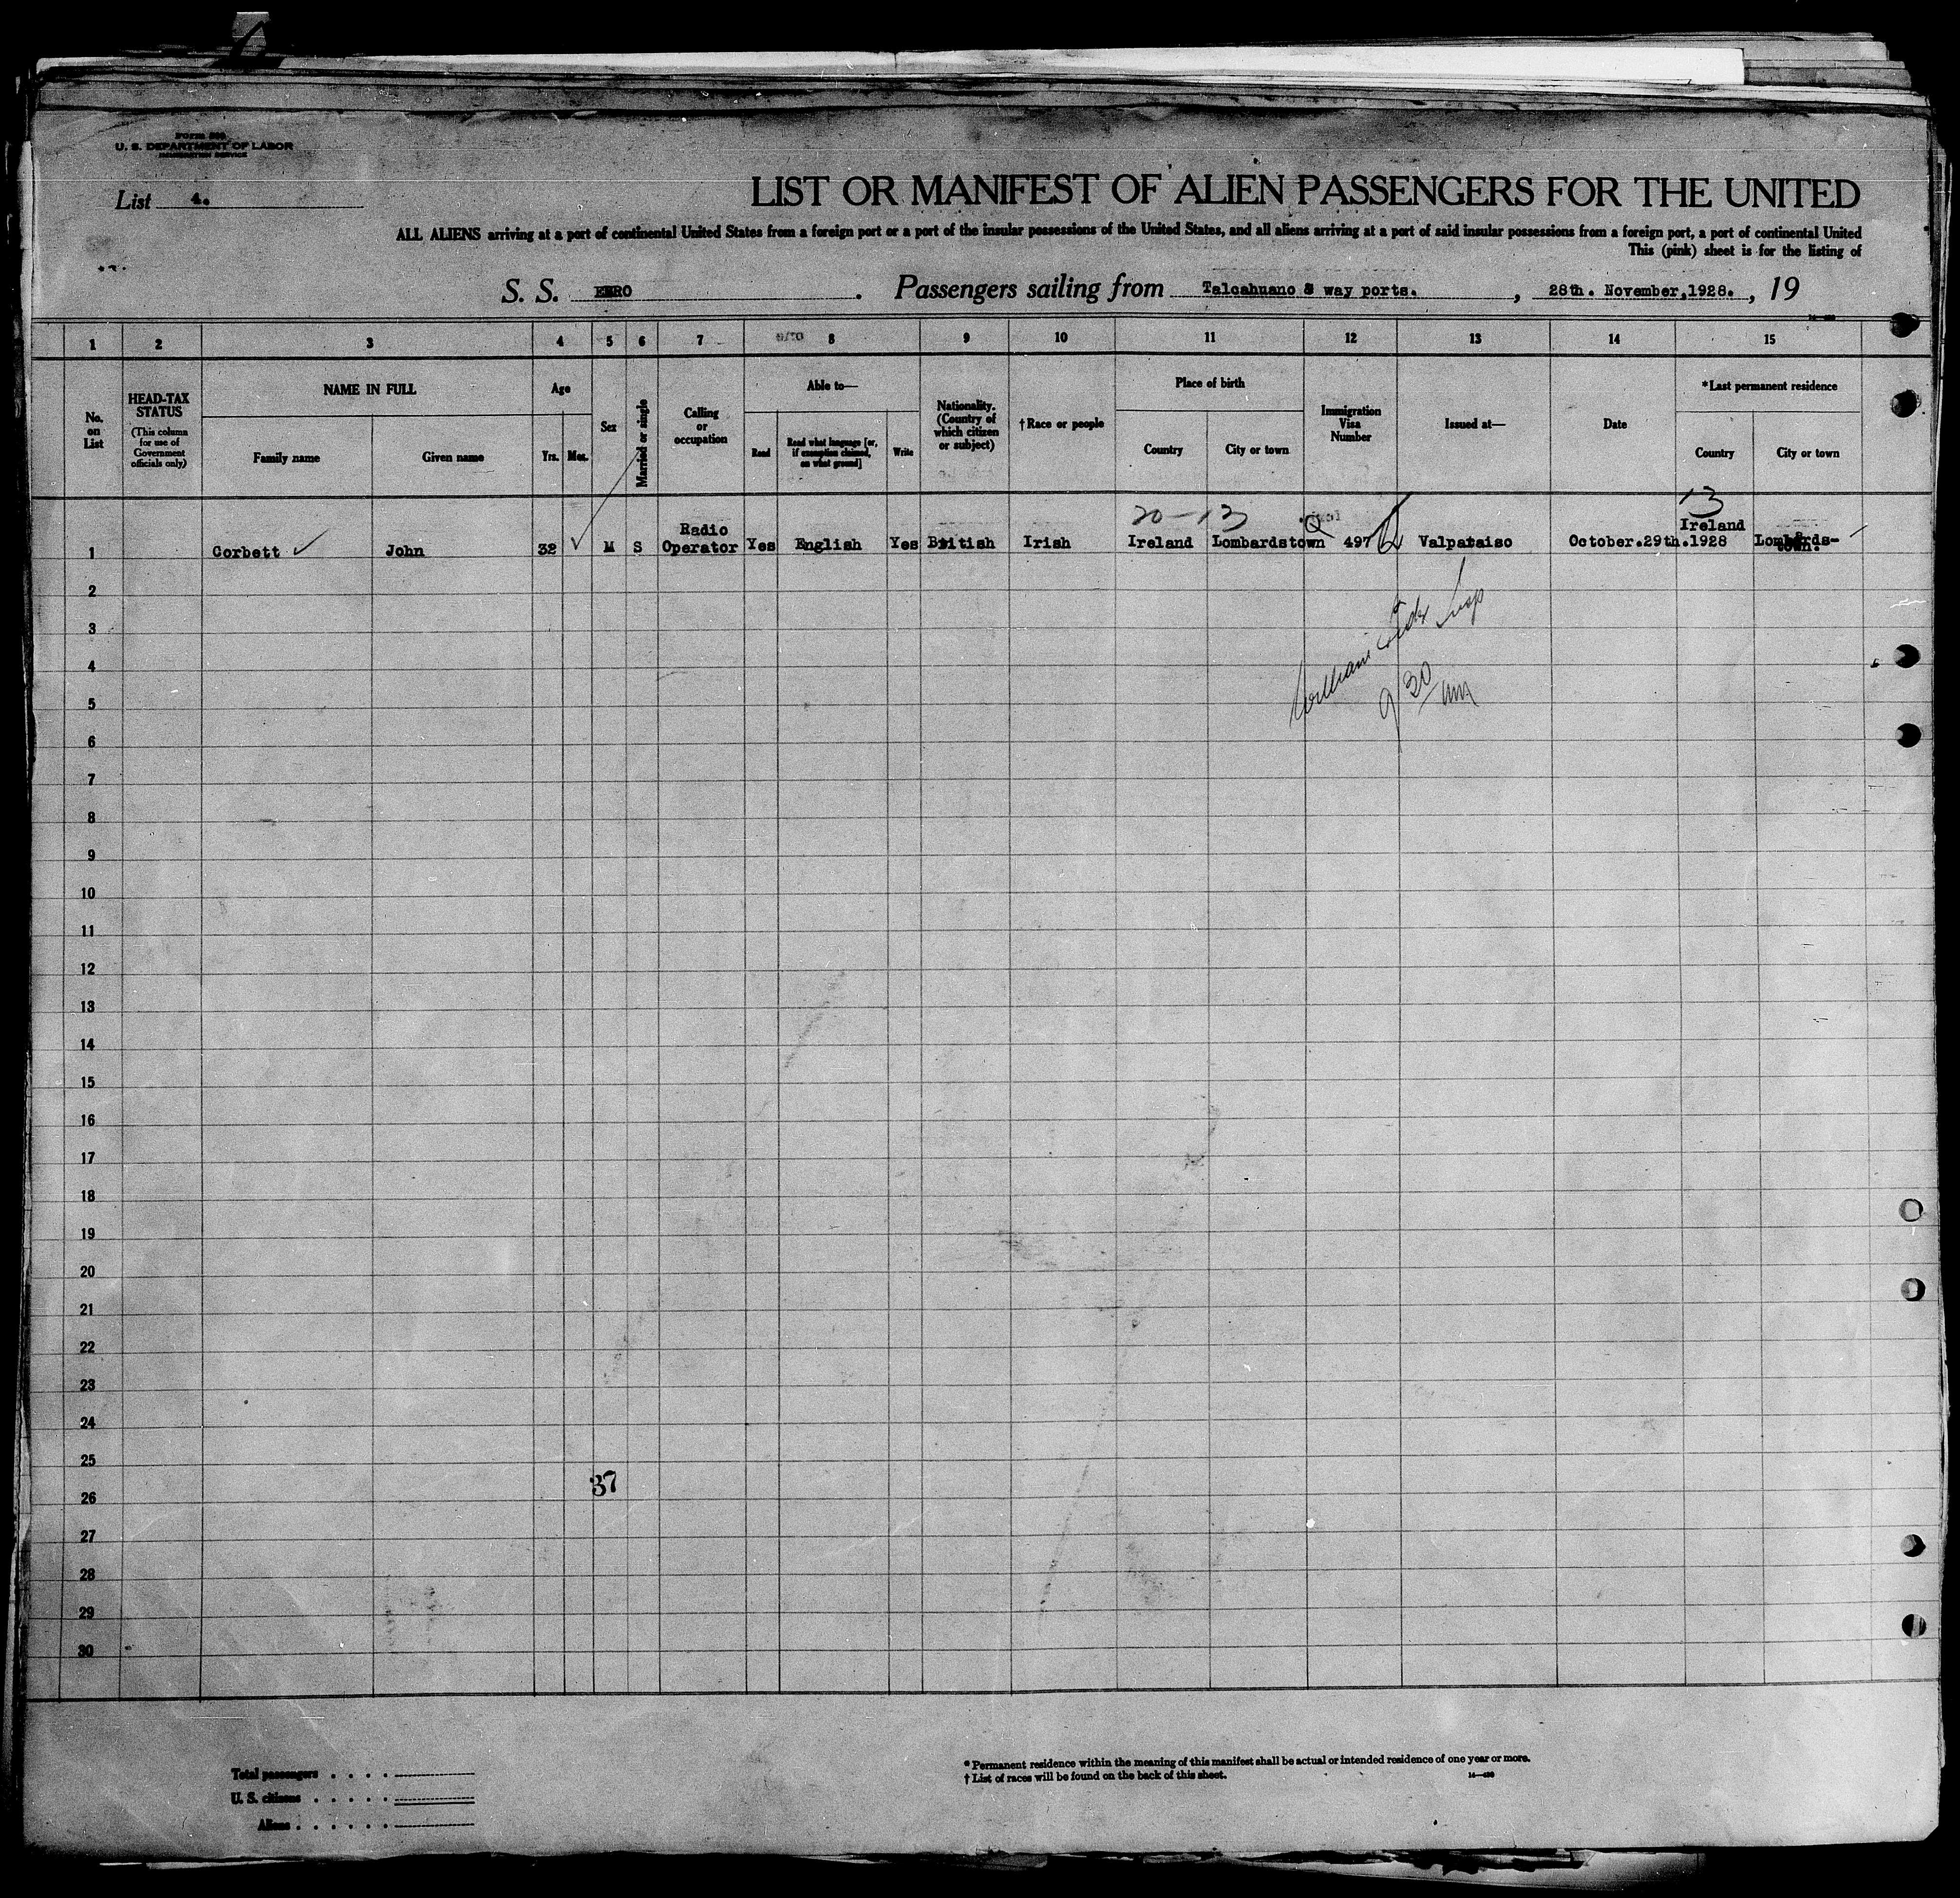 Form 500
U. S. DEPARTMENT OF LABOR
IMMIGRATION SERVICE
List 4.
LIST OR MANIFEST OF ALIEN PASSENGERS FOR THE UNITED
ALL ALIENS arriving at a port of continental United States from a foreign port or a port of the insular possessions of the United States, and all aliens arriving at a port of said insular possessions from a foreign port, a port of continental United
This (pink) sheet is for the listing of
S. S. EBRO . Passengers sailing from Talcahuano & way ports. , 28th. November,1928. , 19
1 2 3 4 5 6 7 8 9 10 11 12 13 14 15
No. on List
HEAD-TAX STATUS
(This column for use of Government officials only)
NAME IN FULL
Family name
Given name
Age
Yrs.
Mos.
Sex
Married or single
Calling or occupation
Able to—
Read
Read what language [or, if exemption claimed, on what ground]
Write
Nationality. (Country of which citizen or subject)
†Race or people
Place of birth
Country
City or town
Immigration Visa Number
Issued at—
Date
*Last permanent residence
Country
City or town
20-13
13
1 Corbett ✓ John 32 ✓ M S Radio Operator Yes English Yes British Irish Ireland Lombardstown Q 497 Valparaiso October.29th.1928 Ireland Lombards-town.
William
Insp
9 30 am
2
3
4
5
6
7
8
9
10
11
12
13
14
15
16
17
18
19
20
21
22
23
24
25
37
26
27
28
29
30
Total passengers . . . .
U. S. citizens . . . . .
Aliens . . . . . .
* Permanent residence within the meaning of this manifest shall be actual or intended residence of one year or more.
† List of races will be found on the back of this sheet.